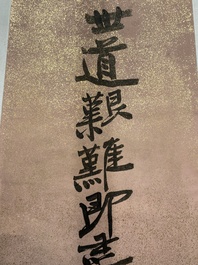 世道艱難即